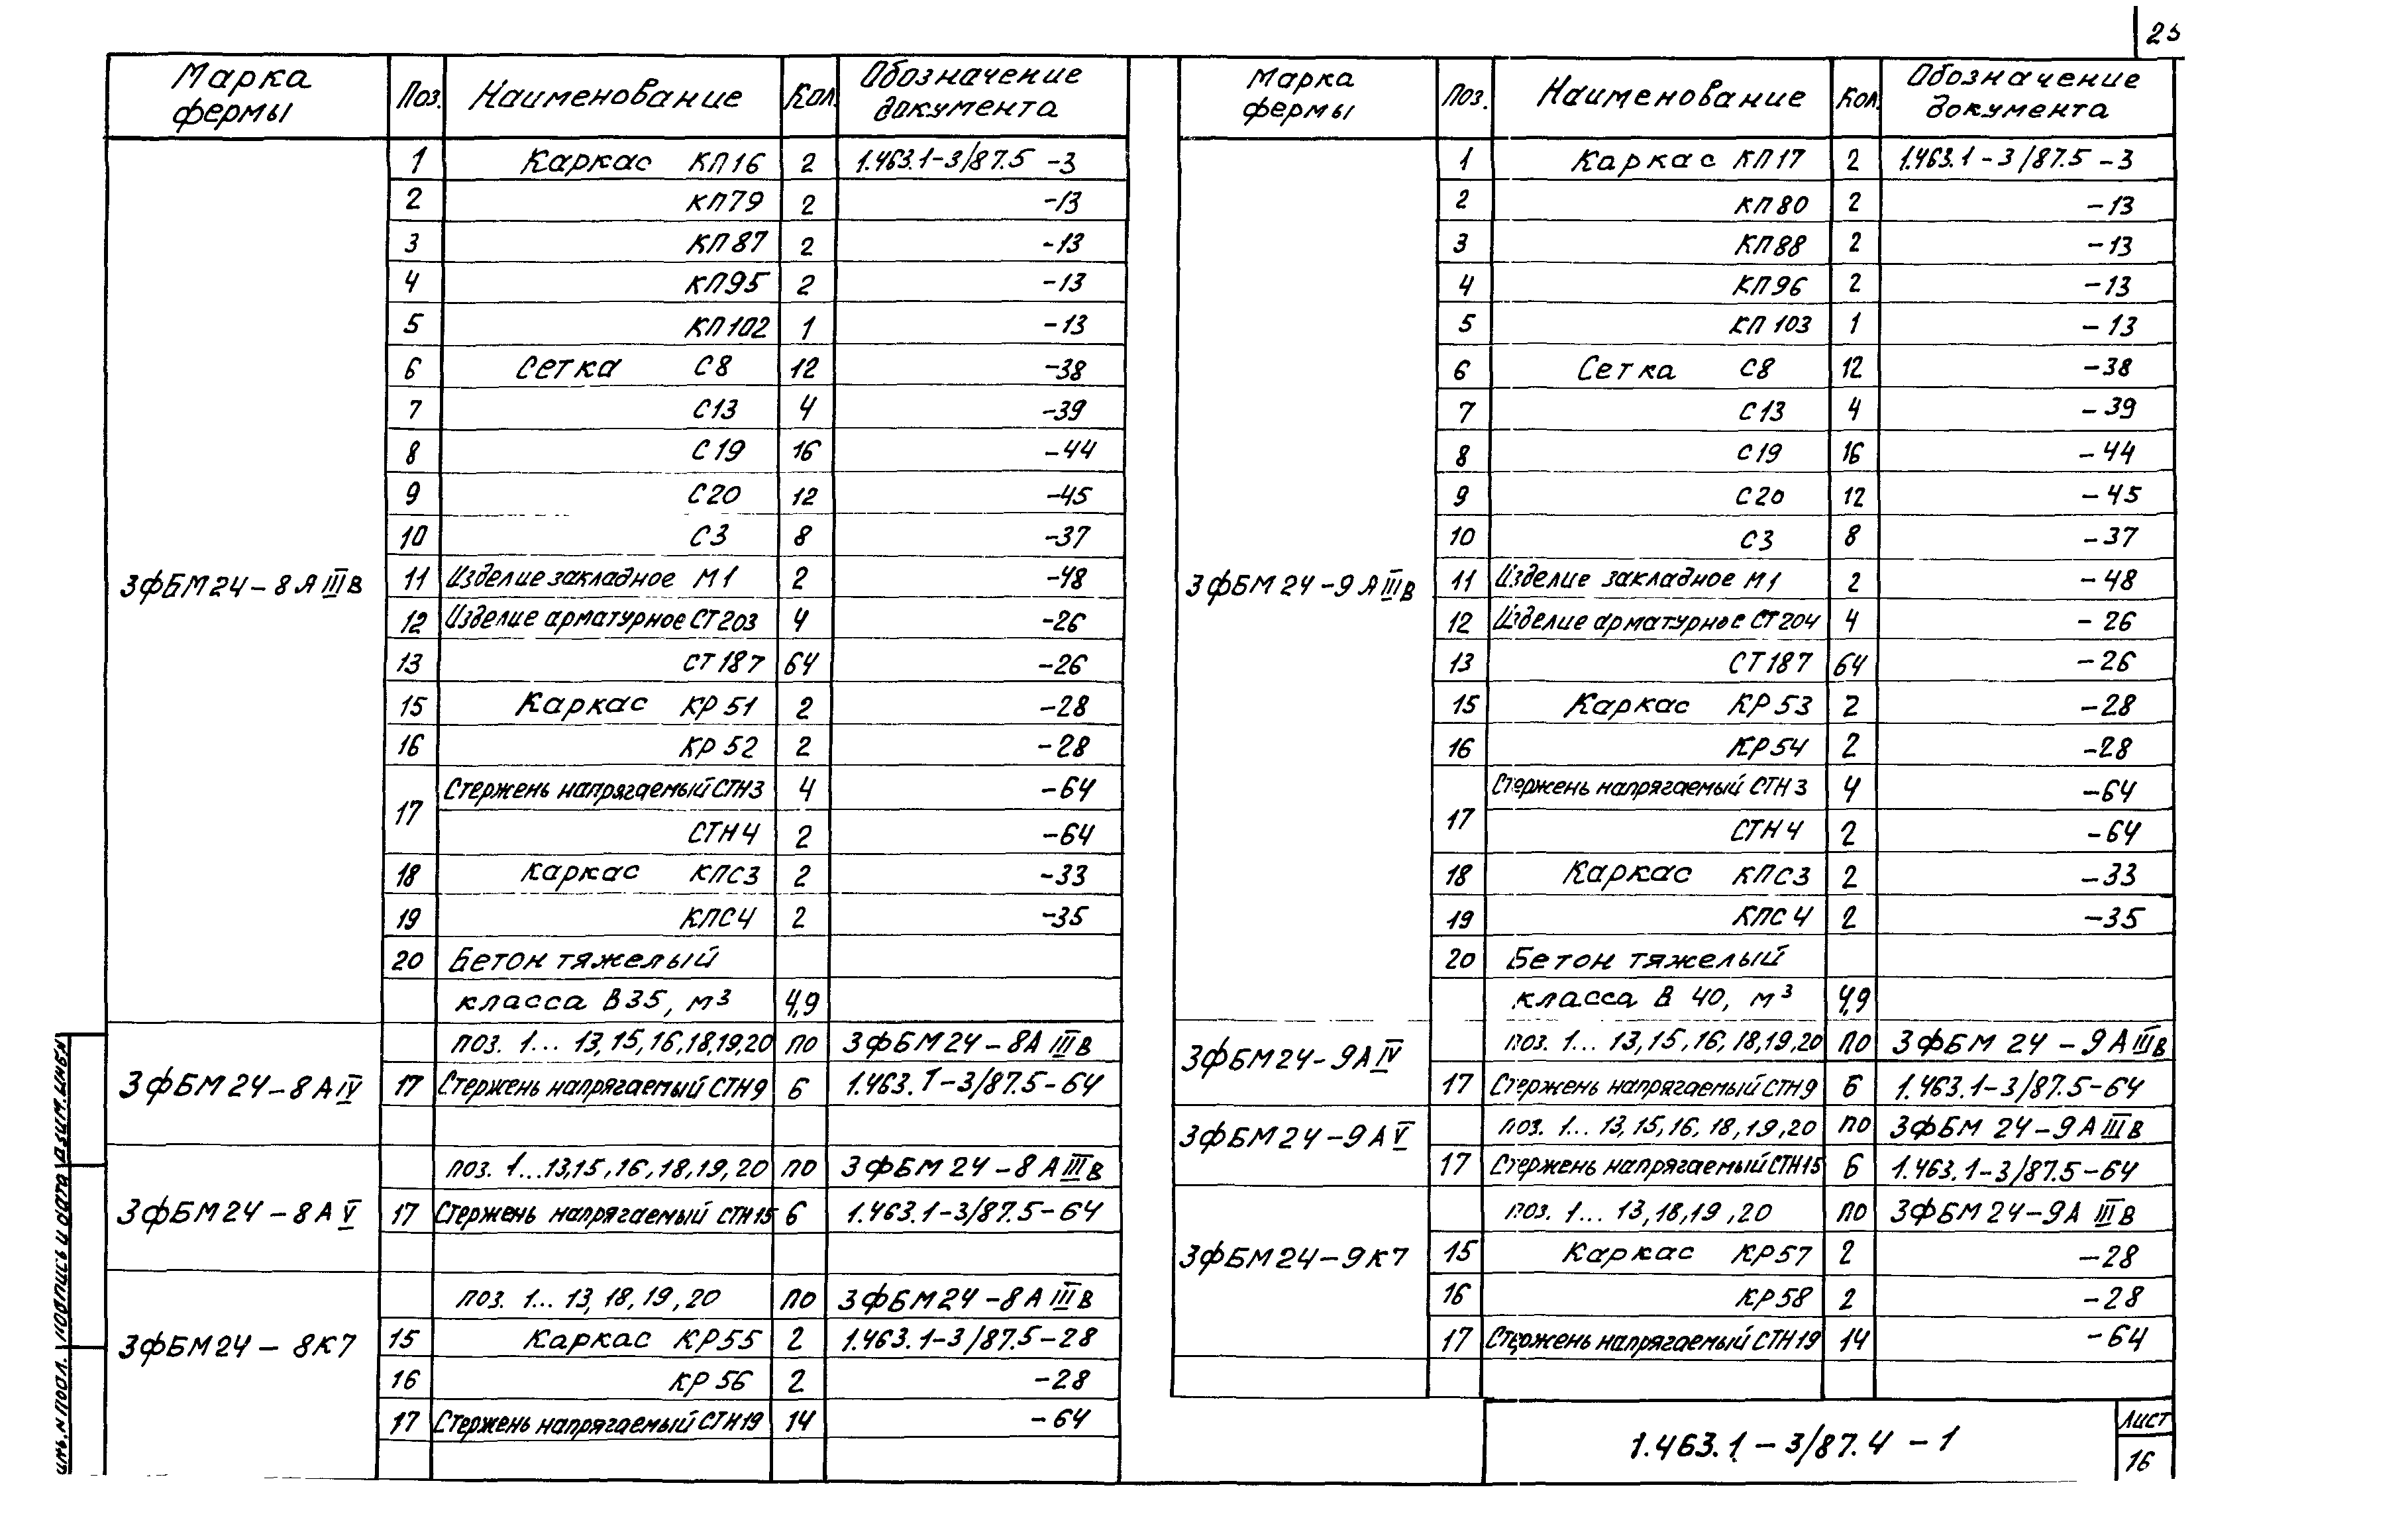 23
Марка фермы Поз. Наименование Кол. Обозначение документа
3ФБМ24-8АIIIв
1 Каркас КП16 2 1.463.1-3/87.5 -3
2 КП79 2 -13
3 КП87 2 -13
4 КП95 2 -13
5 КП102 1 -13
6 Сетка С8 12 -38
7 С13 4 -39
8 С19 16 -44
9 С20 12 -45
10 С3 8 -37
11 Изделие закладное М1 2 -48
12 Изделие арматурное СТ203 4 -26
13 СТ187 64 -26
15 Каркас КР51 2 -28
16 КР52 2 -28
17 Стержень напрягаемый СТН3 4 -64
СТН4 2 -64
18 Каркас КПС3 2 -33
19 КПС4 2 -35
20 Бетон тяжелый
класса В35, м³ 4,9
3ФБМ24-8АIV
поз. 1... 13, 15, 16, 18, 19, 20 по 3ФБМ24-8АIIIв
17 Стержень напрягаемый СТН9 6 1.463.1-3/87.5-64
3ФБМ24-8АV
поз. 1...13, 15, 16, 18, 19, 20 по 3ФБМ24-8АIIIв
17 Стержень напрягаемый СТН15 6 1.463.1-3/87.5-64
3ФБМ24-8К7
поз. 1... 13, 18, 19, 20 по 3ФБМ24-8АIIIв
15 Каркас КР55 2 1.463.1-3/87.5-28
16 КР56 2 -28
17 Стержень напрягаемый СТН19 14 -64
Марка фермы Поз. Наименование Кол. Обозначение документа
3ФБМ24-9АIIIв
1 Каркас КП17 2 1.463.1-3/87.5 -3
2 КП80 2 -13
3 КП88 2 -13
4 КП96 2 -13
5 КП103 1 -13
6 Сетка С8 12 -38
7 С13 4 -39
8 С19 16 -44
9 С20 12 -45
10 С3 8 -37
11 Изделие закладное М1 2 -48
12 Изделие арматурное СТ204 4 -26
13 СТ187 64 -26
15 Каркас КР53 2 -28
16 КР54 2 -28
17 Стержень напрягаемый СТН3 4 -64
СТН4 2 -64
18 Каркас КПС3 2 -33
19 КПС4 2 -35
20 Бетон тяжелый
класса В 40, м³ 4,9
3ФБМ24-9АIV
поз. 1... 13, 15, 16, 18, 19, 20 по 3ФБМ 24-9АIIIв
17 Стержень напрягаемый СТН9 6 1.463.1-3/87.5-64
3ФБМ24-9АV
поз. 1... 13, 15, 16, 18, 19, 20 по 3ФБМ 24-9АIIIв
17 Стержень напрягаемый СТН15 6 1.463.1-3/87.5-64
3ФБМ24-9К7
поз. 1... 13, 18, 19, 20 по 3ФБМ24-9АIIIв
15 Каркас КР57 2 -28
16 КР58 2 -28
17 Стержень напрягаемый СТН19 14 -64
1.463.1-3/87.4 -1
Лист
16
Инв. N подл. Подпись и дата Взим. инв N